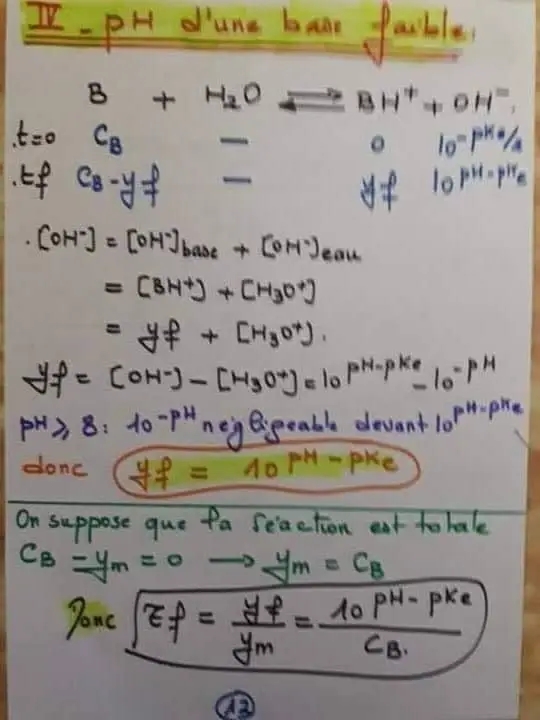 IV - pH d'une base faible.
B + H₂O ⇌ BH⁺ + OH⁻.
.t=0 C_B — 0 10^-pKe/2
.tf C_B-yf — yf 10^pH-pKe
.[OH⁻] = [OH⁻]base + [OH⁻]eau
= [BH⁺] + [H₃O⁺]
= yf + [H₃O⁺].
yf = [OH⁻] - [H₃O⁺] = 10^pH-pKe - 10^-pH
pH ⩾ 8: 10^-pH négligeable devant 10^pH-pKe
donc yf = 10^pH-pKe
On suppose que la réaction est totale
C_B - ym = 0 → ym = C_B
Donc τf = yf/ym = 10^pH-pKe/C_B.
12